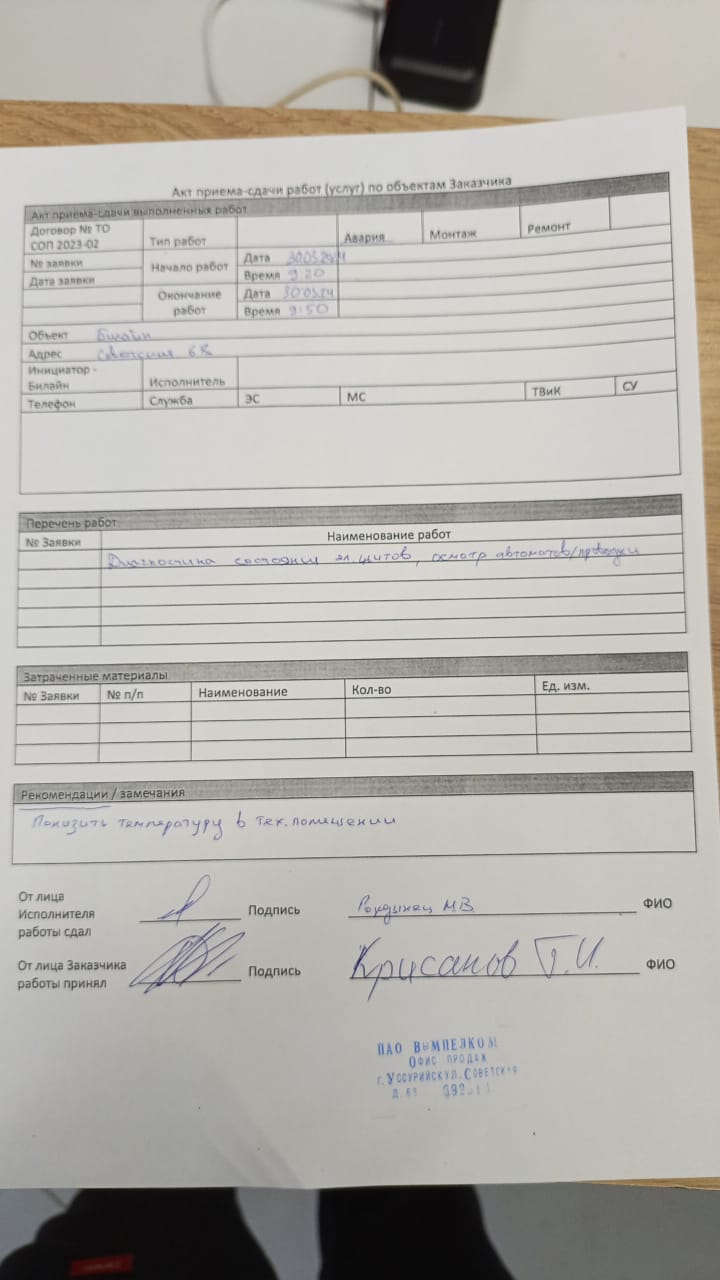 Акт приема-сдачи работ (услуг) по объектам Заказчика
Акт приема-сдачи выполненных работ
Договор № ТО
СОП 2023-02
Тип работ
Авария
Монтаж
Ремонт
№ заявки
Дата заявки
Начало работ
Дата
Время 9:20
Окончание
работ
Дата 30.03.24
Время 9:50
Объект Билайн
Адрес Советская
Инициатор -
Билайн
Исполнитель
Телефон
Служба
ЭС
МС
ТВиК
СУ
Перечень работ
№ Заявки
Наименование работ
Диагностика состояния эл.щитов, осмотр автоматов/проводки
Затраченные материалы
№ Заявки
№ п/п
Наименование
Кол-во
Ед. изм.
Рекомендации / замечания
Понизить температуру в тех.помещении
От лица
Исполнителя
работы сдал
Подпись
М.В.
ФИО
От лица Заказчика
работы принял
Подпись
Крисанов Г.И.
ФИО
ПАО ВЫМПЕЛКОМ
ОФИС ПРОДАЖ
Г. УССУРИЙСК УЛ. СОВЕТСКАЯ